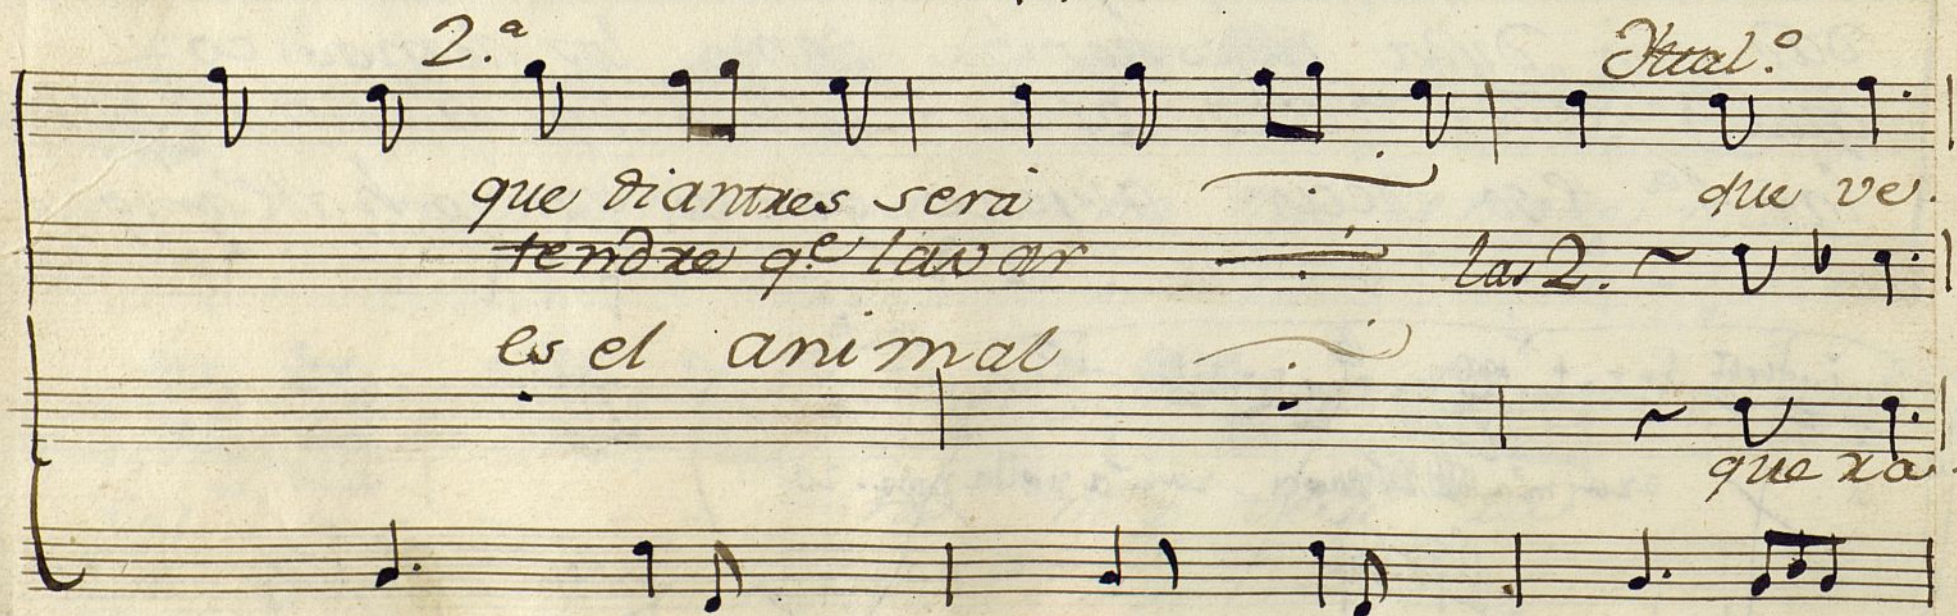 2.ª Ittal.º
que diantres sera que ve
tendre q.e lavar las 2.
es el animal
que xa